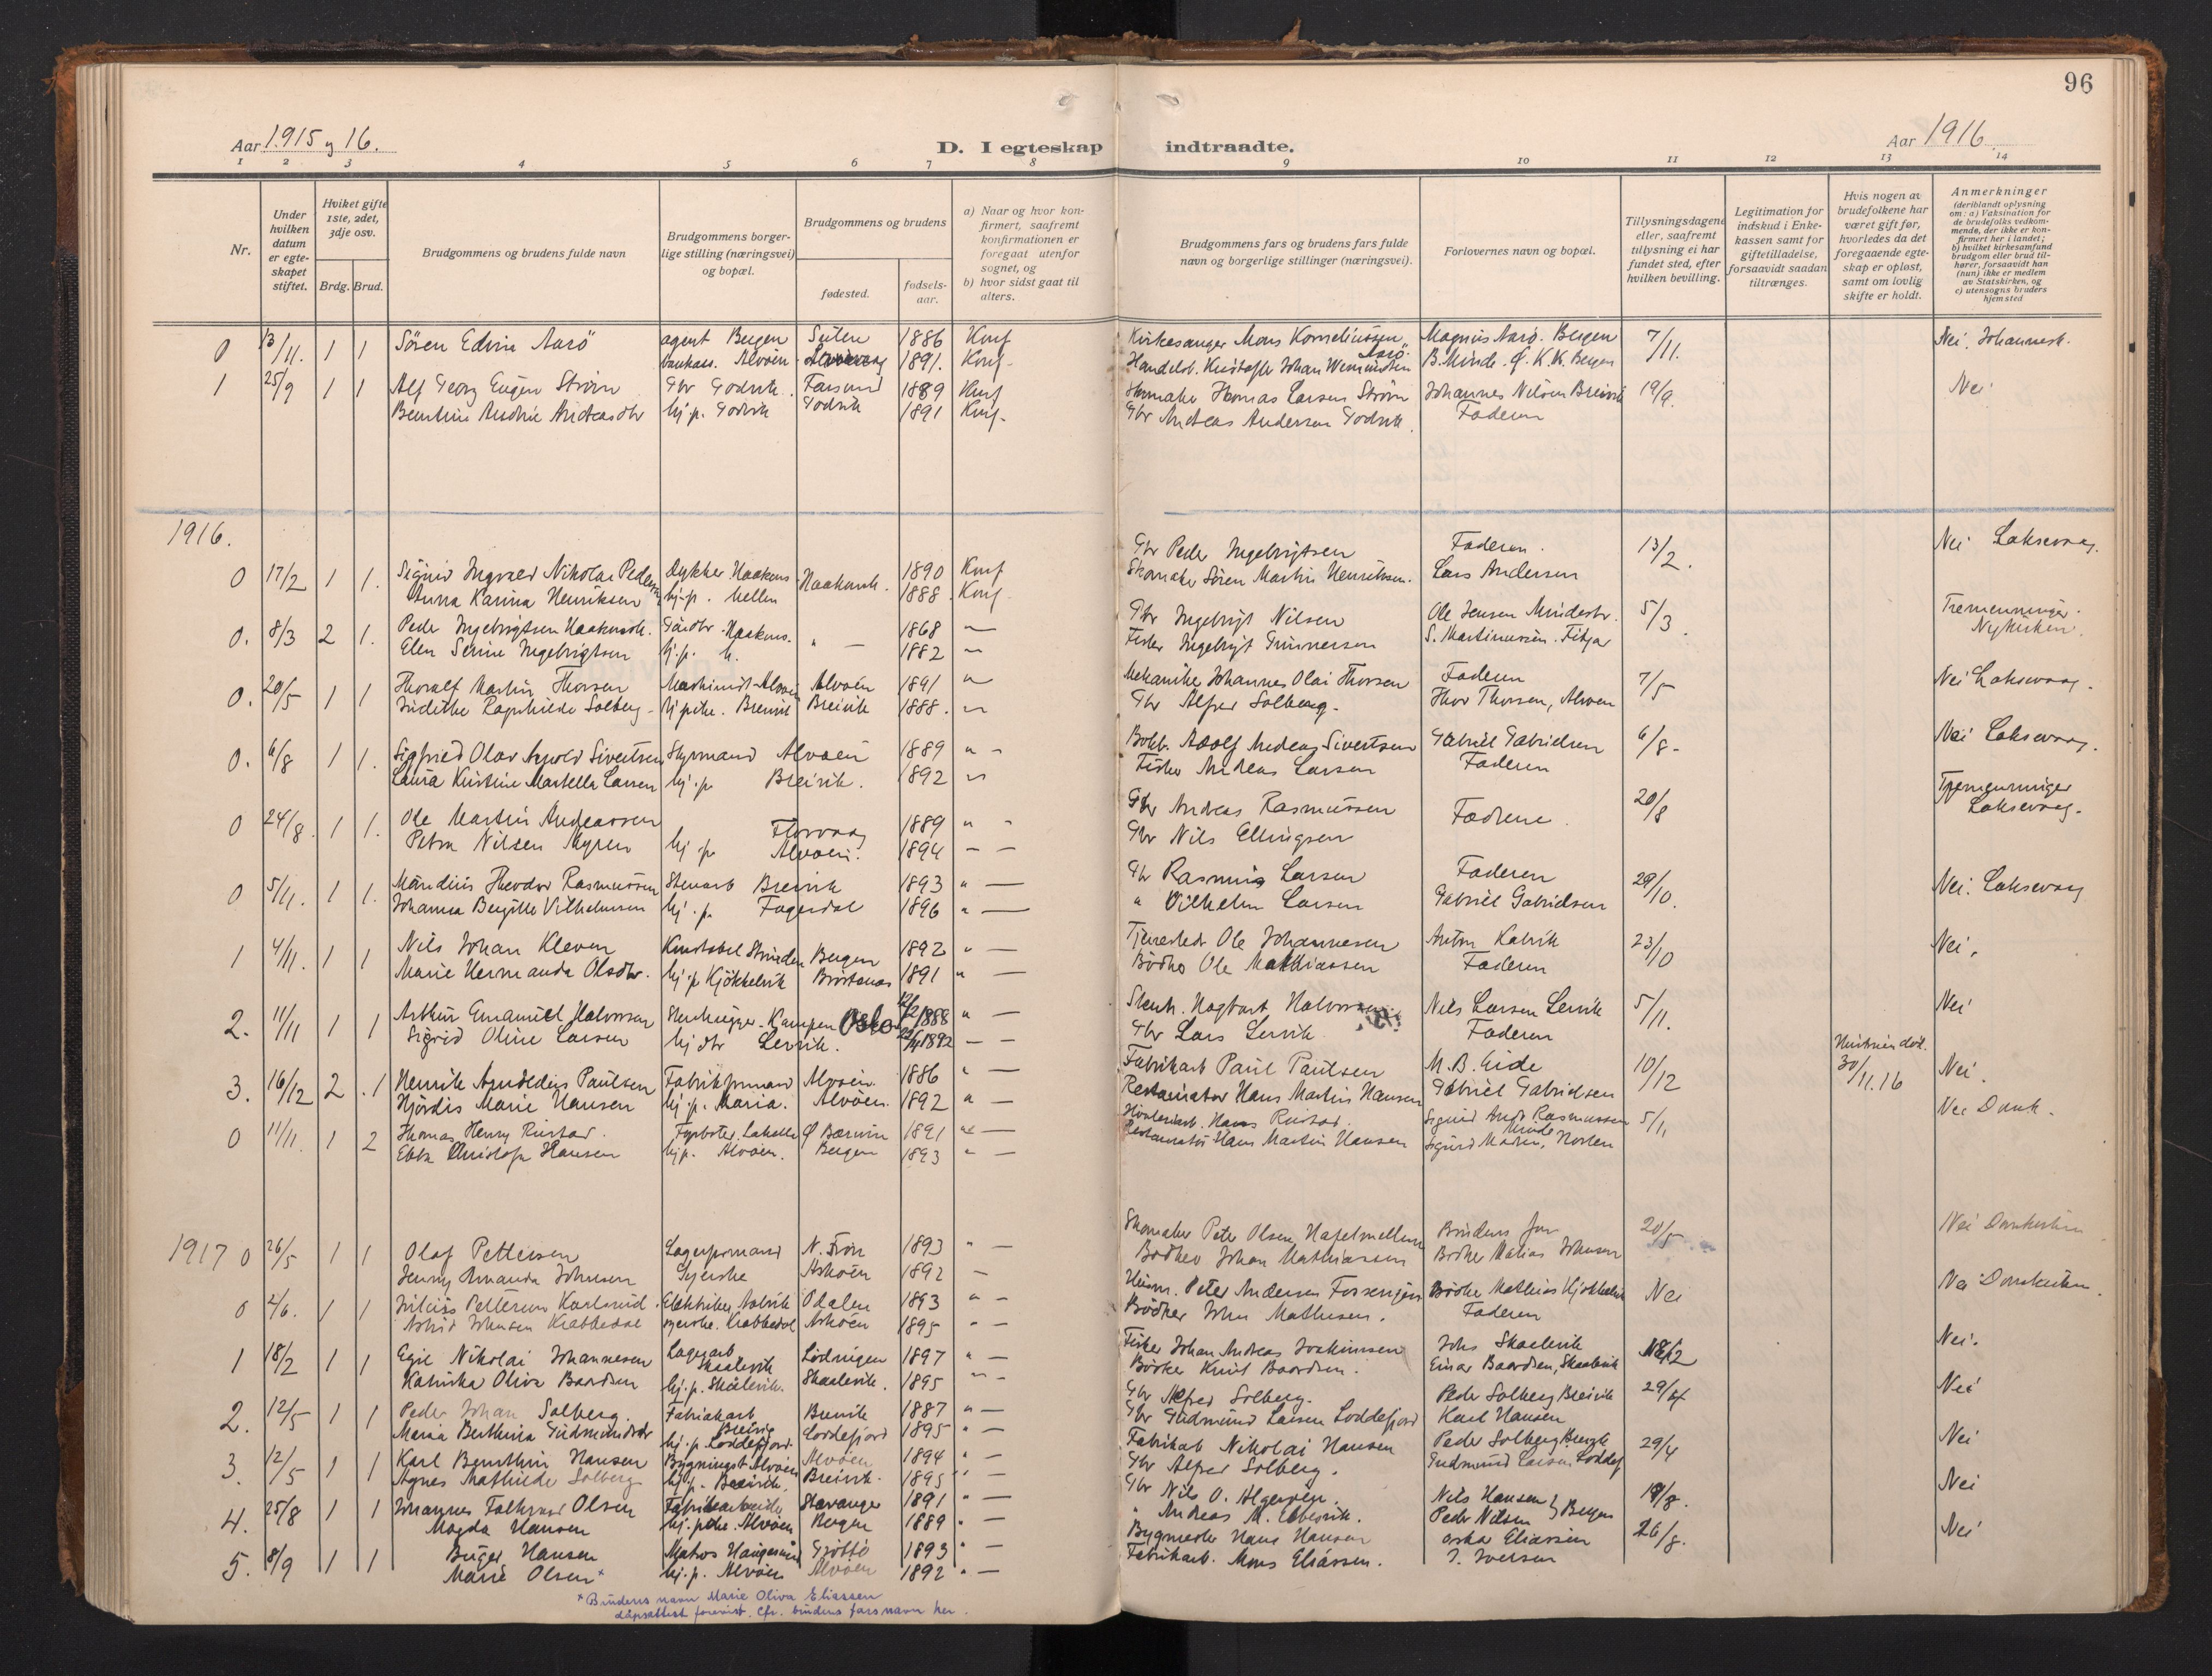 96
Aar 1915 og 16.
D. I egteskap indtraadte.
Aar 1916
1 2 3 4 5 6 7 8 9 10 11 12 13 14
Nr.
Under hvilken datum er egteskapet stiftet.
Hviket gifte 1ste, 2det, 3dje osv.
Brdg. Brud.
Brudgommens og brudens fulde navn
Brudgommens borgerlige stilling (næringsvei) og bopæl.
Brudgommens og brudens
fødested.
fødselsaar.
a) Naar og hvor konfirmert, saafremt konfirmationen er foregaat utenfor sognet, og
b) hvor sidst gaat til alters.
Brudgommens fars og brudens fars fulde navn og borgerlige stillinger (næringsvei).
Forlovernes navn og bopæl.
Tillysningsdagene eller, saafremt tillysning ei har fundet sted, efter hvilken bevilling.
Legitimation for indskud i Enkekassen samt for giftetilladelse, forsaavidt saadan tiltrænges.
Hvis nogen av brudefolkene har været gift før, hvorledes da det foregaaende egteskap er opløst, samt om lovlig skifte er holdt.
Anmerkninger (deriblandt oplysning om: a) Vaksination for de brudefolks vedkommende, der ikke er konfirmert her i landet; b) hvilket kirkesamfund brudgom eller brud tilhører, forsaavidt han (hun) ikke er medlem av Statskirken, og c) utensogns bruders hjemsted
0 13/11. 1 1 Sören Edvin Aarö agent Bergen 1886 Konf Kirkesanger Mons Korneliussen Aarö. Magnus Aarö. Bergen 7/11. Nei. Johannesk.
Alvøen 1891. Konf. Handelsb. Kristofer Johan B. Minde. Bergen
1 25/9 1 1 Alf Georg Eugen Strøm Gbr Godvik Farsund 1889 Konf Thomas Larsen Strøm Johannes Nilsen Breivik 19/9. Nei
Bentine Andrea Andreasdtr hj.p. Godvik Godvik 1891 Konf. Gbr Andreas Andersen Godvik. Faderen
1916.
0 17/2 1 1. Sigurd Ingvald Nikolai Pedersen dykker Haakons Haakonsh. 1890 Konf Gbr Peder Ingebrigtsen Faderen. 13/2. Nei Laksevaag.
Anna Karina Henriksen hj.p. Mellen 1888. Konf Skomaker Sören Martin Henriksen. Lars Andersen
0. 8/3 2 1. Peder Ingebrigtsen Haakonsh. Gaardbr. Haakons. " — 1868 — Gbr Ingebrigt Nilsen Ole Jensen Mindestr. 5/3. Tremenninger. Nykirken.
Elen Serine Ingebrigtsen hj.p. H. 1882 — Fisker Ingebrigt Gunnersen S. Martinussen. Fitjar
0. 20/5 1 1 Thoralf Martin Thorsen Alvøen Alvøen 1891 " Mekaniker Johannes Olai Thorsen Faderen 7/5 Nei Laksevaag.
Indithe Ragnhilde Solberg hjpike. Breivik Breivik 1888. Gbr Alfred Solberg. Thor Thorsen, Alvøen
0. 6/8 1 1. Sigfred Olav Arnold Sivertsen Styrmand Alvøen 1889 " - Bokb. Adolf Andreas Sivertsen Gabriel Gabrielsen 6/8. Nei Laksevaag.
Laura Kristine Martella Larsen hj.p Breivik. 1892 Fisker Andreas Larsen Faderen
0 24/8. 1 1. Ole Martin Andreassen Florvaag 1889 " - Gbr Andreas Rasmussen Fædrene. 20/8 Tremenninger Laksevaag.
Petra Nilsen Myren hj p Alvøen. 1894 — — Gbr Nils Ellingsen
0 5/11. 1 1. Mandius Theodor Rasmussen Stenarb Breivik 1893 " — Gbr Rasmus Larsen Faderen 29/10. Nei. Laksevaag
Johanna Bergitte Vilhelmsen hj.p. Fagerdal 1896 " — " Vilhelm Larsen Gabriel Gabrielsen
1 4/11. 1 1 Nils Johan Kleven Konstabel Bergen 1892 " — Ole Johannesen Anton Kalvik 23/10 Nei.
Marie Hermanda Olsdtr. hj.p Kjøkkelvik 1891 " — Bödker Ole Mathiassen Faderen
2. 11/11 1 1 Arthur Emanuel Halvorsen Stenhugger. Kampen Oslo 12/2 1888 " — Stenh. Hagbart Halvorsen Nils Larsen Lervik 5/11. Nei
Sigrid Oline Larsen hj dtr Lervik. 1892 — — Gbr Lars Lervik Faderen
3. 16/12 2 1 Henrik Arnoldius Paulsen Fabrikformand Alvøen 1886 " — Fabrikarb Paul Paulsen M. B. Eide 10/12 30/11.16 Nei.
Hjördis Marie Hansen hj.p. Maria. Alvøen. 1892 " — Restauratør Hans Martin Hansen Gabriel Gabrielsen
0 11/11. 1 2 Thomas Henry Rustad. Fyrbøter Bærum 1891 " — Hans Rustad. Sigurd Andr Rasmussen Minde 5/11 Nei Domk.
Ebba Christofa Hansen hjp. Alvøen. Bergen 1893 " — Restauratør Hans Martin Hansen Sigurd
1917 0 26/5 1 1 Olaf Pettersen Lagerformand N. Fron 1893 " — Skomaker Peter Olsen Brudens far 20/5 Nei Domkirken
Jenny Amanda Johnsen Syerske Askøen 1892 — Bødker Johan Mathiassen Bødker Matias Johnsen
0 2/6. 1 1 Julius Pettersen Karlsrud. Elektriker Odalen 1893 " - Husm. Peter Andersen Bödker Mathias Kjøkkelvik Nei Nei Domkirken.
Astrid Johnsen Krabbedal syerske. Krabbedal Askøen 1895 " - Bödker John Mathisen. Faderen
1 18/2 1 1 Egil Nikolai Johannesen Lagerarb Skaalevik Lødingen 1897 " — Fisker Johan Andreas Joakimsen Johs Skaalevik 18/2 Nei.
Katinka Oliva Baardsen hj.p. Skålevik. Skaalevik. 1895 Bödker Knut Baardsen. Einar Baardsen, Skaalevik
2. 12/5 1 1 Peder Johan Solberg. Fabrikarb Breivik Breivik 1887 " — Gbr Alfred Solberg. Peder Solberg Breivik 29/4 Nei
Maria Berthina Gudmundsdtr hj.p. Loddefjord Loddefjord 1895 " - Gbr Gudmund Larsen Loddefjord Karl Hansen
3. 12/5 1 1 Karl Bernthin Hansen Bygningst. Alvøen Alvøen 1894 " Fabrikarb Nikolai Hansen Peder Solberg 29/4 Nei
Agnes Mathilde Solberg hj.p. Breivik. Breivik. 1895 " — Gbr Alfred Solberg. Gudmund Larsen Loddef
4. 25/8 1 1 Johannes Falkvard Olsen Fabrikarbeide Stavanger 1891 " — Gbr Nils O. Nils Hansen } Bergen 19/8. Nei
Magda Hansen hj. pike. Alvøen Bergen 1889 " " Andreas M. Ebbesvik. Peder Nilsen
5. 8/9 1 1 Birger Hansen Matros Haugesund 1893 " — Bygmester Hans Hansen Oskar Eliassen 26/8. Nei
Marie Olsen* hj.p. Alvøen Alvøen 1892 " — Fabrikarb. Mons Eliassen. J. Iversen
* Brudens navn Marie Oliva Eliassen
dåpsattest forevist. Cfr. brudens fars navn her.